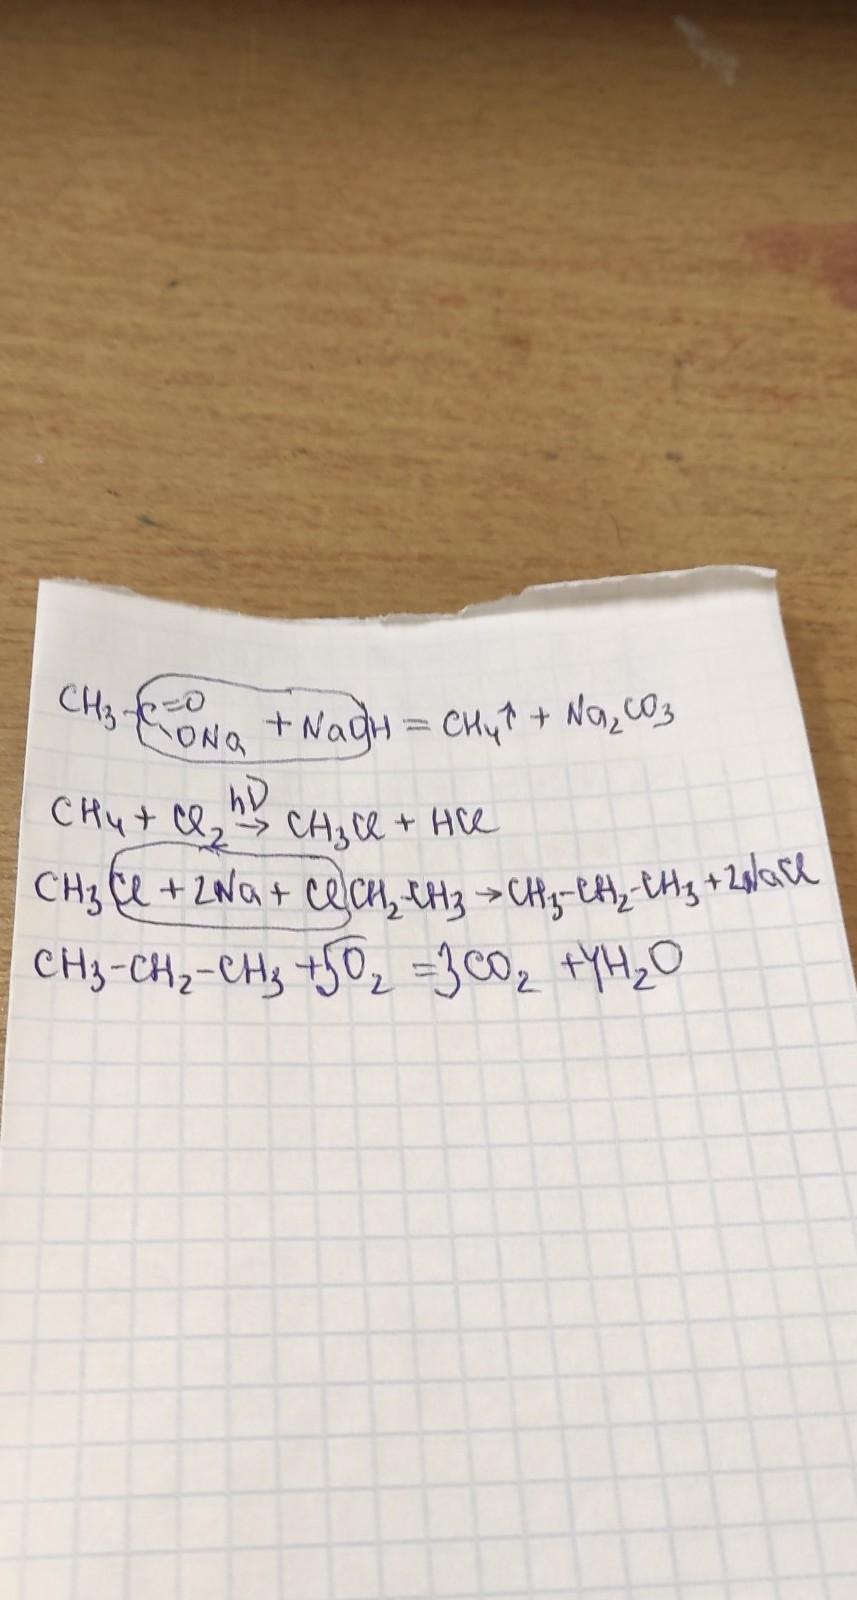 CH₃-C=O ONa + NaOH = CH₄↑ + Na₂CO₃
CH₄ + Cl₂ hν → CH₃Cl + HCl
CH₃Cl + 2Na + ClCH₂-CH₃ → CH₃-CH₂-CH₃ + 2NaCl
CH₃-CH₂-CH₃ + 5O₂ = 3CO₂ + 4H₂O